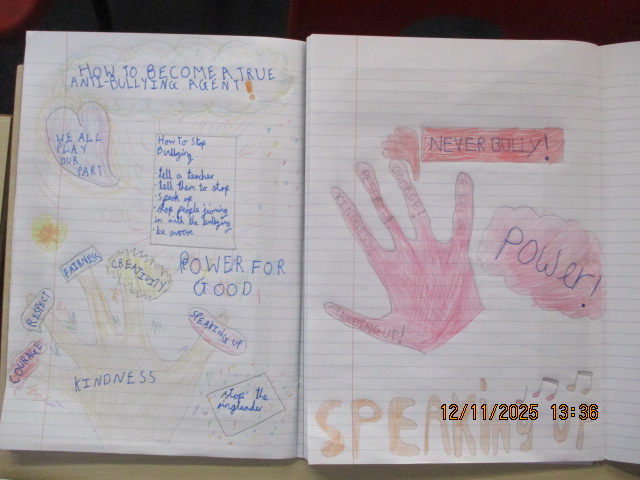 HOW TO BECOME A TRUE
ANTI-BULLYING AGENT!
WE ALL
PLAY
OUR
PART
How To Stop
Bullying
• tell a teacher
• tell them to stop
• Speak up
• stop people joining
in with the bullying
• be aware
FAIRNESS
CREATIVITY
POWER FOR
GOOD
RESPECT
SPEAKING UP
COURAGE
KINDNESS
stop the
ringleader
NEVER BULLY!
POWER!
SPEAKING UP
12/11/2025 13:36